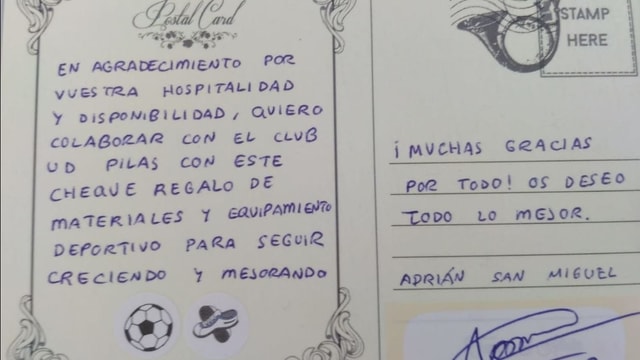 Postal Card
EN AGRADECIMIENTO POR
VUESTRA HOSPITALIDAD
Y DISPONIBILIDAD, QUIERO
COLABORAR CON EL CLUB
UD PILAS CON ESTE
CHEQUE REGALO DE
MATERIALES Y EQUIPAMIENTO
DEPORTIVO PARA SEGUIR
CRECIENDO Y MEJORANDO
STAMP
HERE
¡MUCHAS GRACIAS
POR TODO! OS DESEO
TODO LO MEJOR.
ADRIÁN SAN MIGUEL